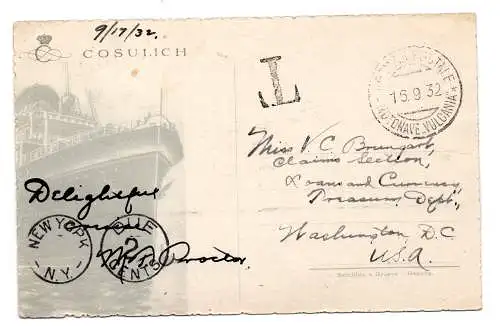 9/17/32.
COSULICH
T
POSTALE
16.9.32
MOTONAVE VULCANIA
Miss V. C.
Claims Section,
Loans and Currency
Treasury Dept.,
Washington D.C
U.S.A.
Delightful
Proctor
NEW YORK
N.Y.
DUE
2
CENTS